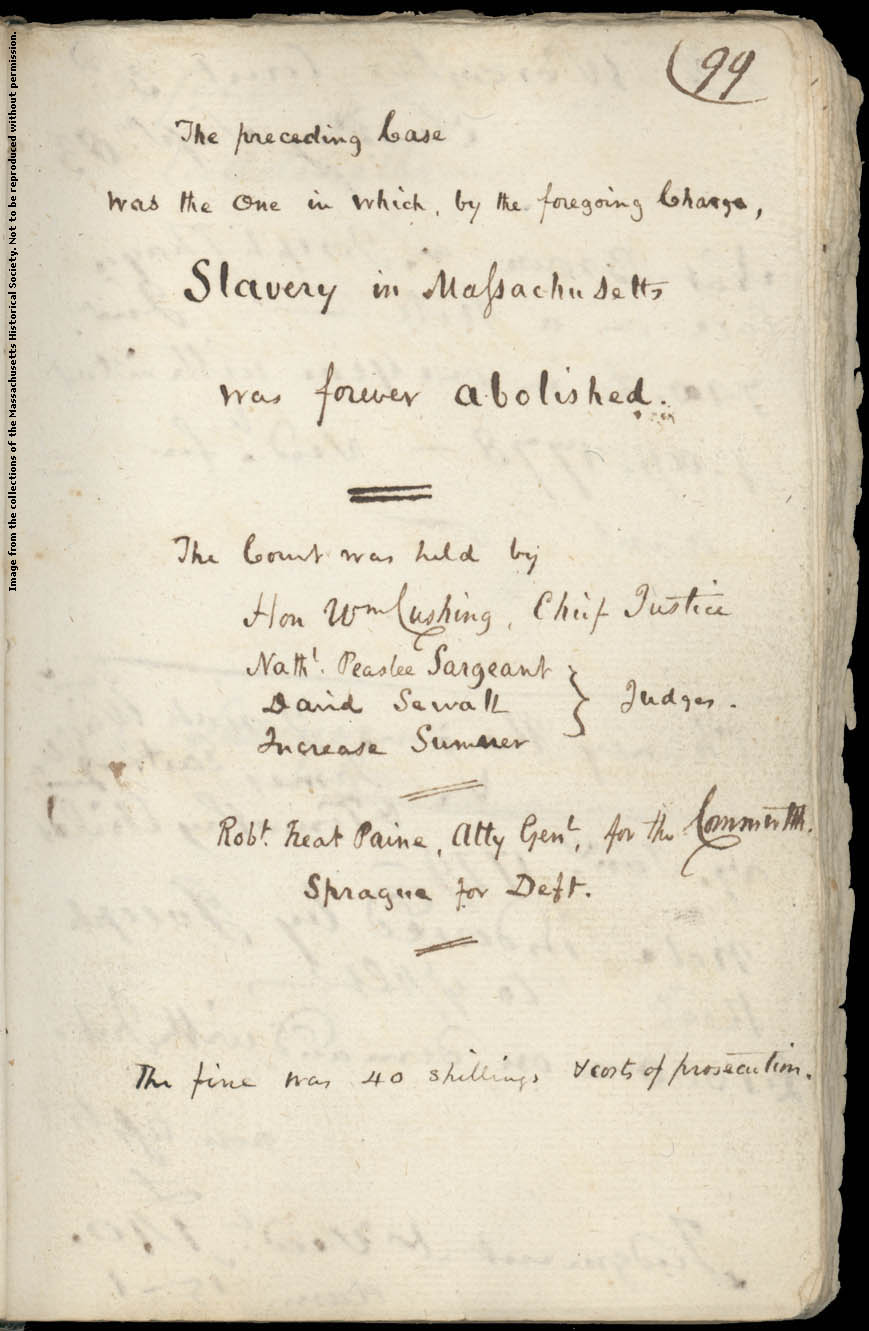 Image from the collections of the Massachusetts Historical Society. Not to be reproduced without permission.
99
The preceding Case
was the One in which, by the foregoing Charge,
Slavery in Maſsachusetts
was forever abolished.
The Court was held by
Hon Wm Cushing, Chief Justice
Nathl. Peaslee Sargeant
David Sewall } Judges.
Increase Sumner
Robt. Treat Paine, Atty Genl, for the Commwth.
Sprague for Deft.
The fine was 40 shillings & costs of prosecution.